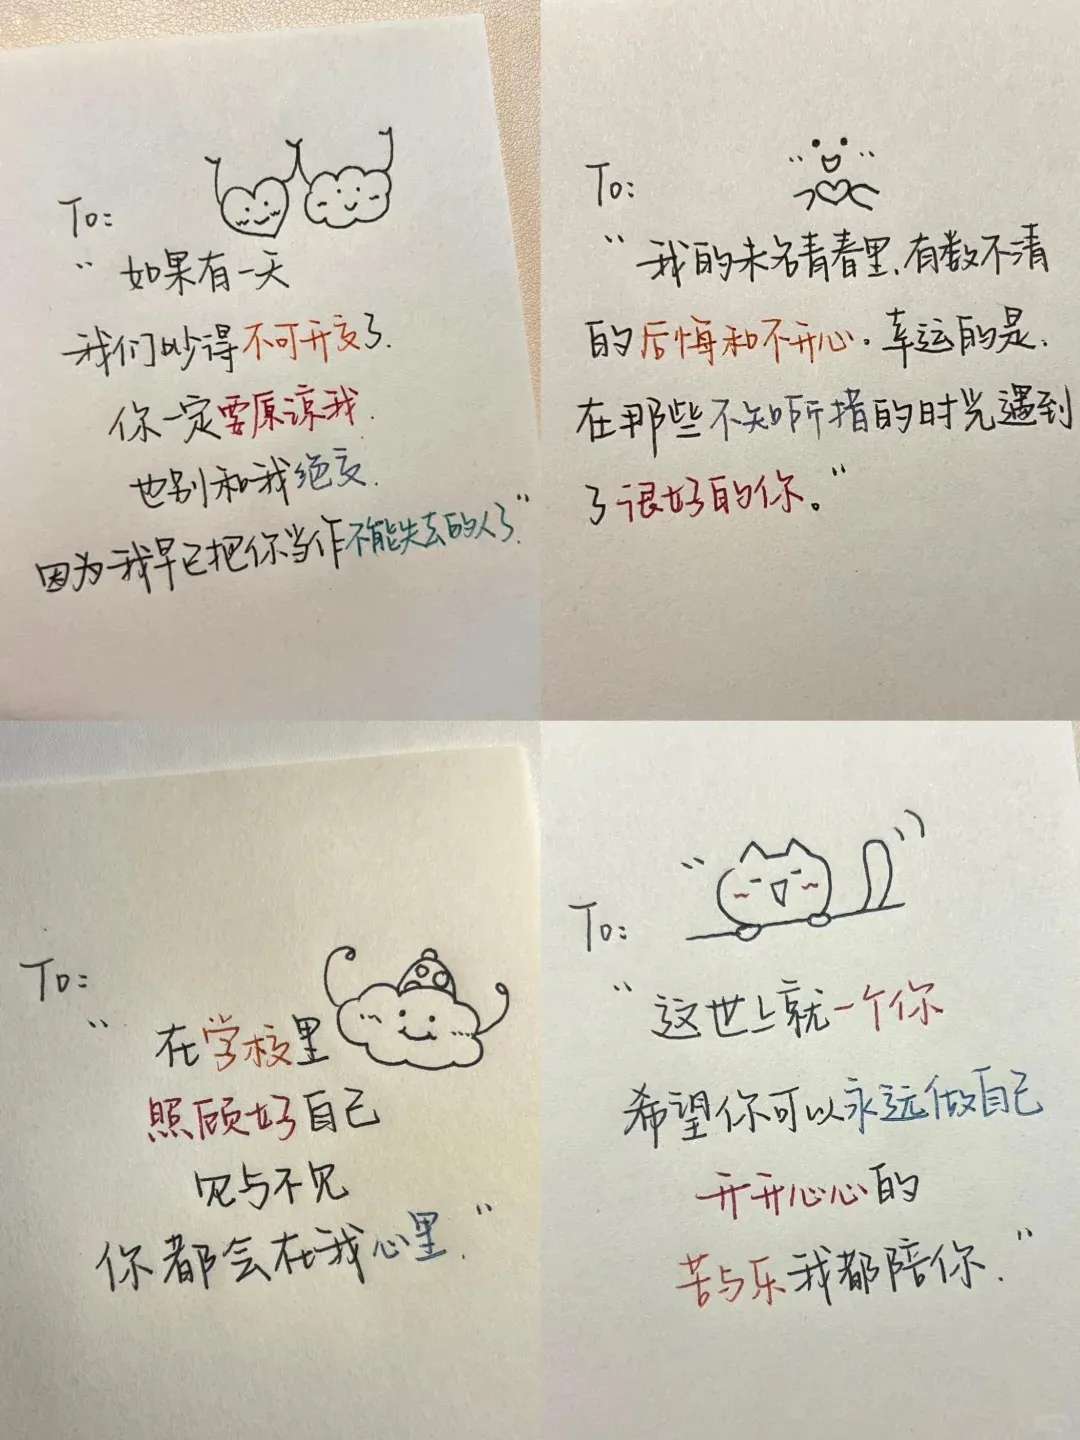 To:
“如果有一天
我们吵得不可开交了.
你一定要原谅我.
也别和我绝交.
因为我早已把你当作不能失去的人了.”
To:
“我的未名青春里.有数不清
的后悔和不开心.幸运的是.
在那些不知所措的时光遇到
了很好的你。”
To:
“在学校里
照顾好自己
见与不见
你都会在我心里.”
To:
“这世上就一个你
希望你可以永远做自己
开开心心的
苦与乐我都陪你.”